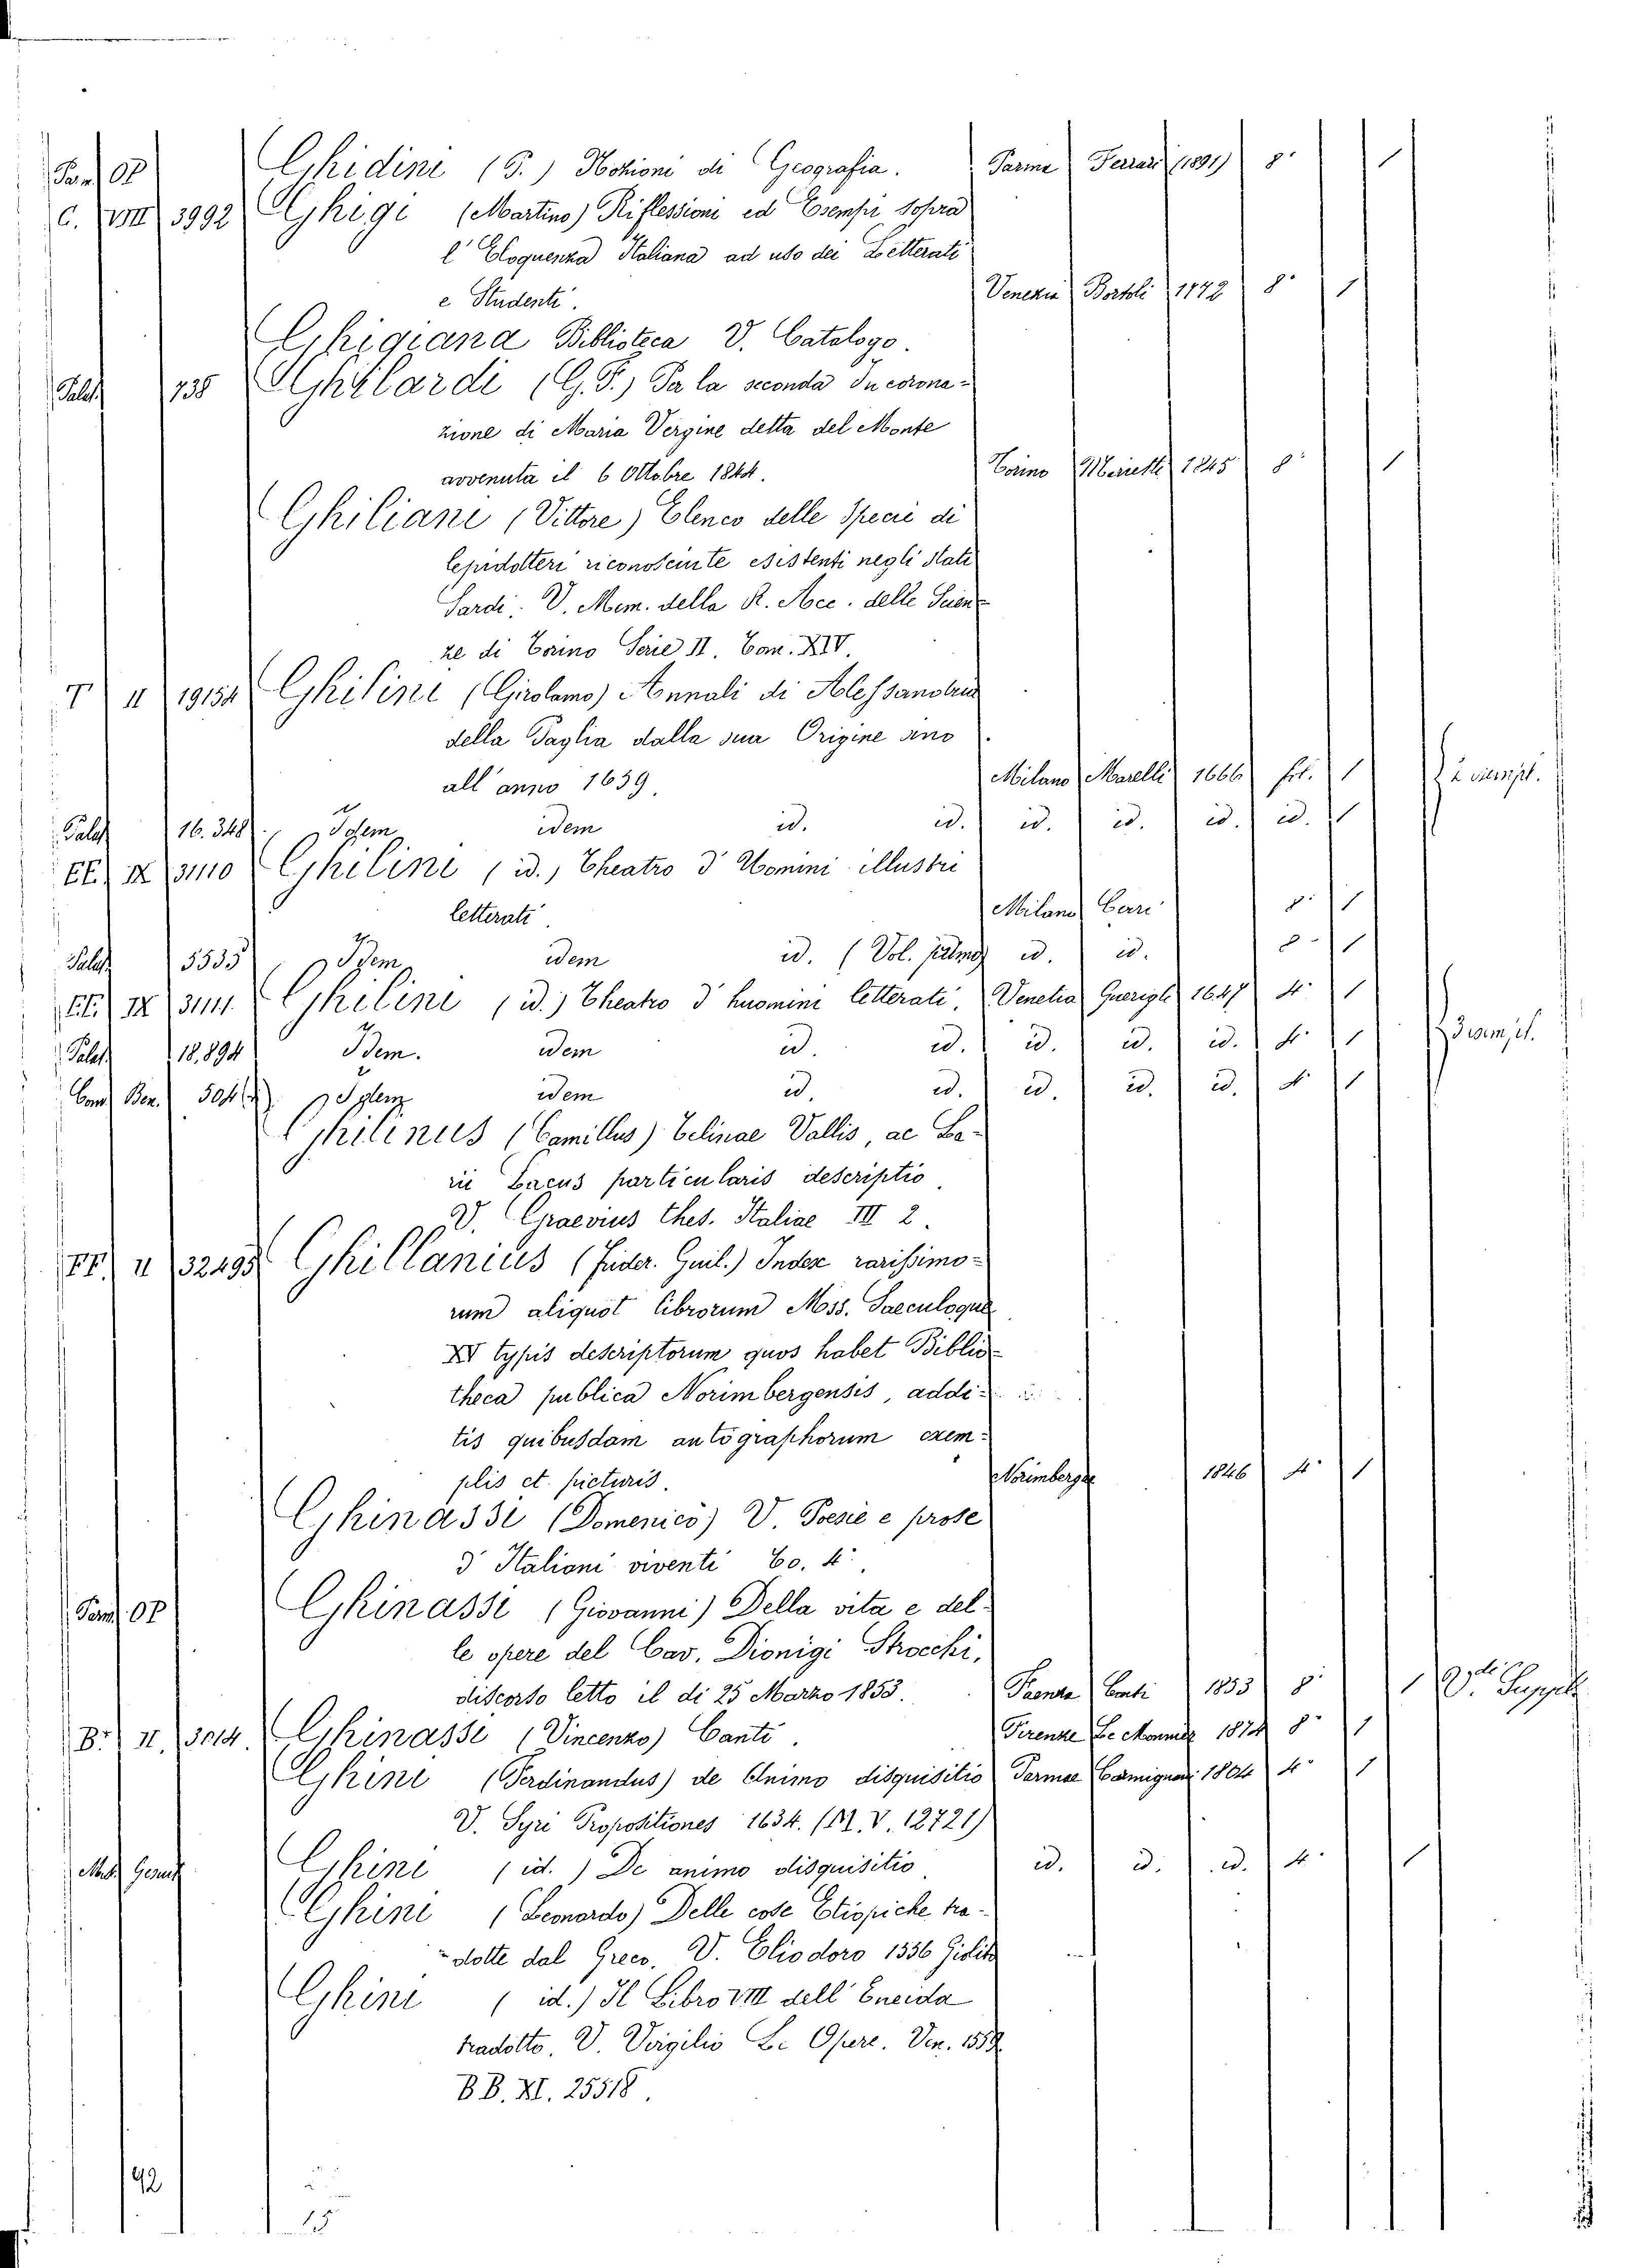 Parm OP Ghidini (P.) Nozioni di Geografia. Parma Ferrari (1891) 8° 1
C. VIII 3992 Ghigi (Martino) Riflessioni ed Esempi sopra
l'Eloquenza Italiana ad uso dei Letterati
e Studenti. Venezia Bortoli 1772 8° 1
Ghigiana Biblioteca V. Catalogo.
Palat 738 Ghilardi (G. F.) Per la seconda Incorona=
zione di Maria Vergine detta del Monte
avvenuta il 6 Ottobre 1844. Torino Marietti 1845 8° 1
Ghiliani (Vittore) Elenco delle Specie di
lepidotteri riconosciute esistenti negli Stati
Sardi. V. Mem. della R. Acc. delle Scien=
ze di Torino Serie II. Tom. XIV.
T II 19154 Ghilini (Girolamo) Annali di Alessandria
della Paglia dalla sua Origine sino
all'anno 1659. Milano Marelli 1666 fol. 1 2 esempl.
Palat 16.348 Idem idem id. id. id. id. id. id. 1
EE. IX 31110 Ghilini (id.) Theatro d'Uomini illustri
letterati. Milano Cerri 8° 1
Palat 5535 Idem idem id. (Vol. primo) id. id. 8° 1
EE. IX 31111. Ghilini (id.) Theatro d'huomini letterati. Venetia Guerigli 1647 4° 1
Palat 18,894 Idem. idem id. id. id. id. id. 4° 1 3 esempl.
Com Ben. 504 Idem idem id. id. id. id. id. 4° 1
Ghilinus (Camillus) Telinae Vallis, ac La=
rii Lacus particularis descriptio.
V. Graevius Thes. Italiae III 2.
FF. II 32495 Ghillanius (Frider. Guil.) Index rarissimo=
rum aliquot librorum Mss. Saeculoque
XV typis descriptorum quos habet Biblio=
theca publica Norimbergensis, addi=
tis quibusdam autographorum exem=
plis et picturis. Norimbergae 1846 4° 1
Ghinassi (Domenico) V. Poesie e prose
d'Italiani viventi To. 4°.
Parm OP Ghinassi (Giovanni) Della vita e del=
le opere del Cav. Dionigi Strocchi,
discorso letto il di 25 Marzo 1853. Faenza Conti 1853 8° 1 V. Suppl.
Br. II. 3014 Ghinassi (Vincenzo) Canti. Firenze Le Monnier 1874 8° 1
Ghini (Ferdinandus) de Animo disquisitio Parmae Carmignani 1804 4° 1
V. Syri Propositiones 1634. (M. V. 12721)
Ghini (id.) De animo disquisitio id. id. id. 4° 1
Ghini (Leonardo) Delle cose Etiopiche tra=
dotte dal Greco. V. Eliodoro 1556 Giolito
Ghini (id.) Il Libro VIII dell'Eneida
tradotto. V. Virgilio Le Opere. Ven. 1559
BB. XI. 25518.
92
15